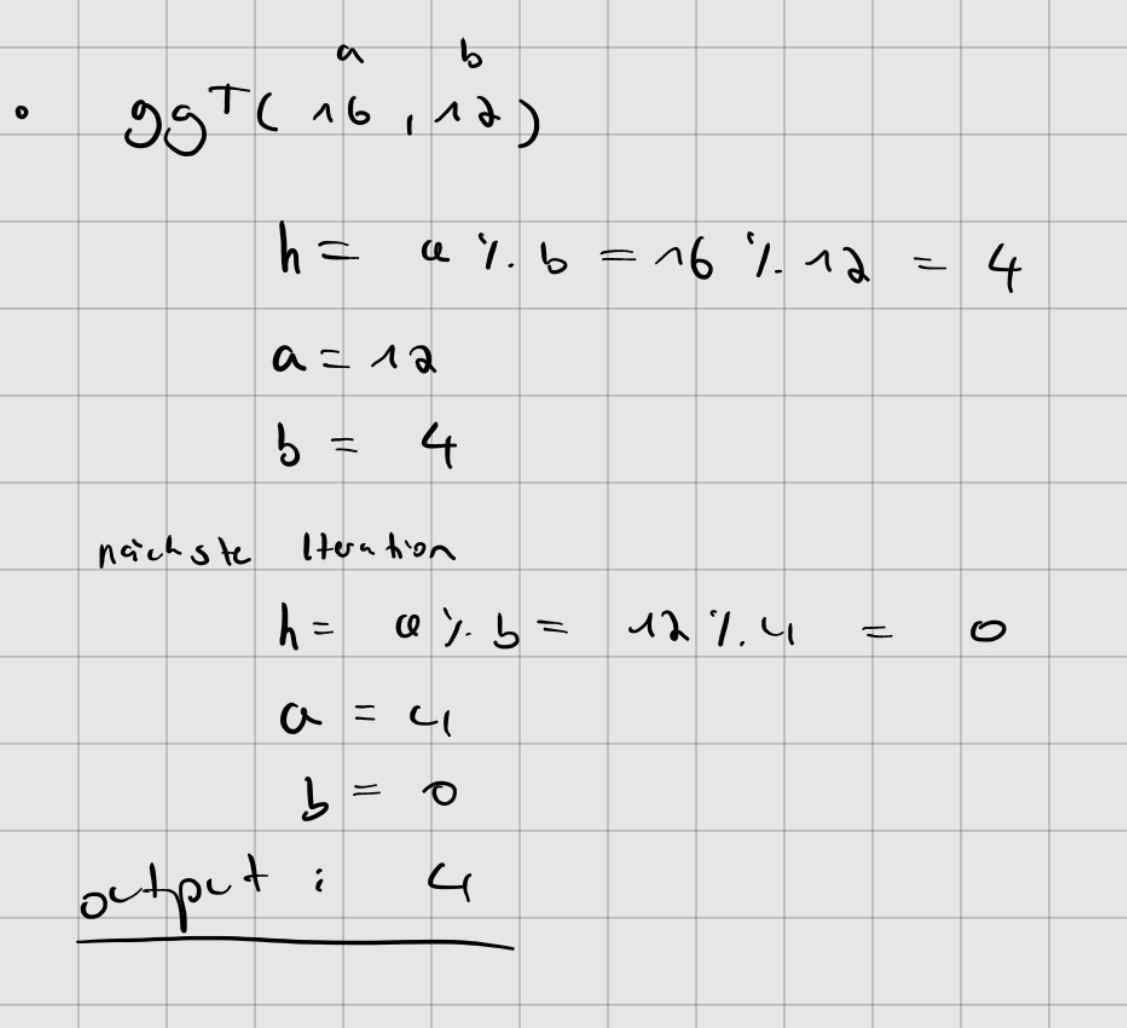 a b
• ggT( 16 , 12 )
h = a % b = 16 % 12 = 4
a = 12
b = 4
nächste Iteration
h = a % b = 12 % 4 = 0
a = 4
b = 0
output : 4